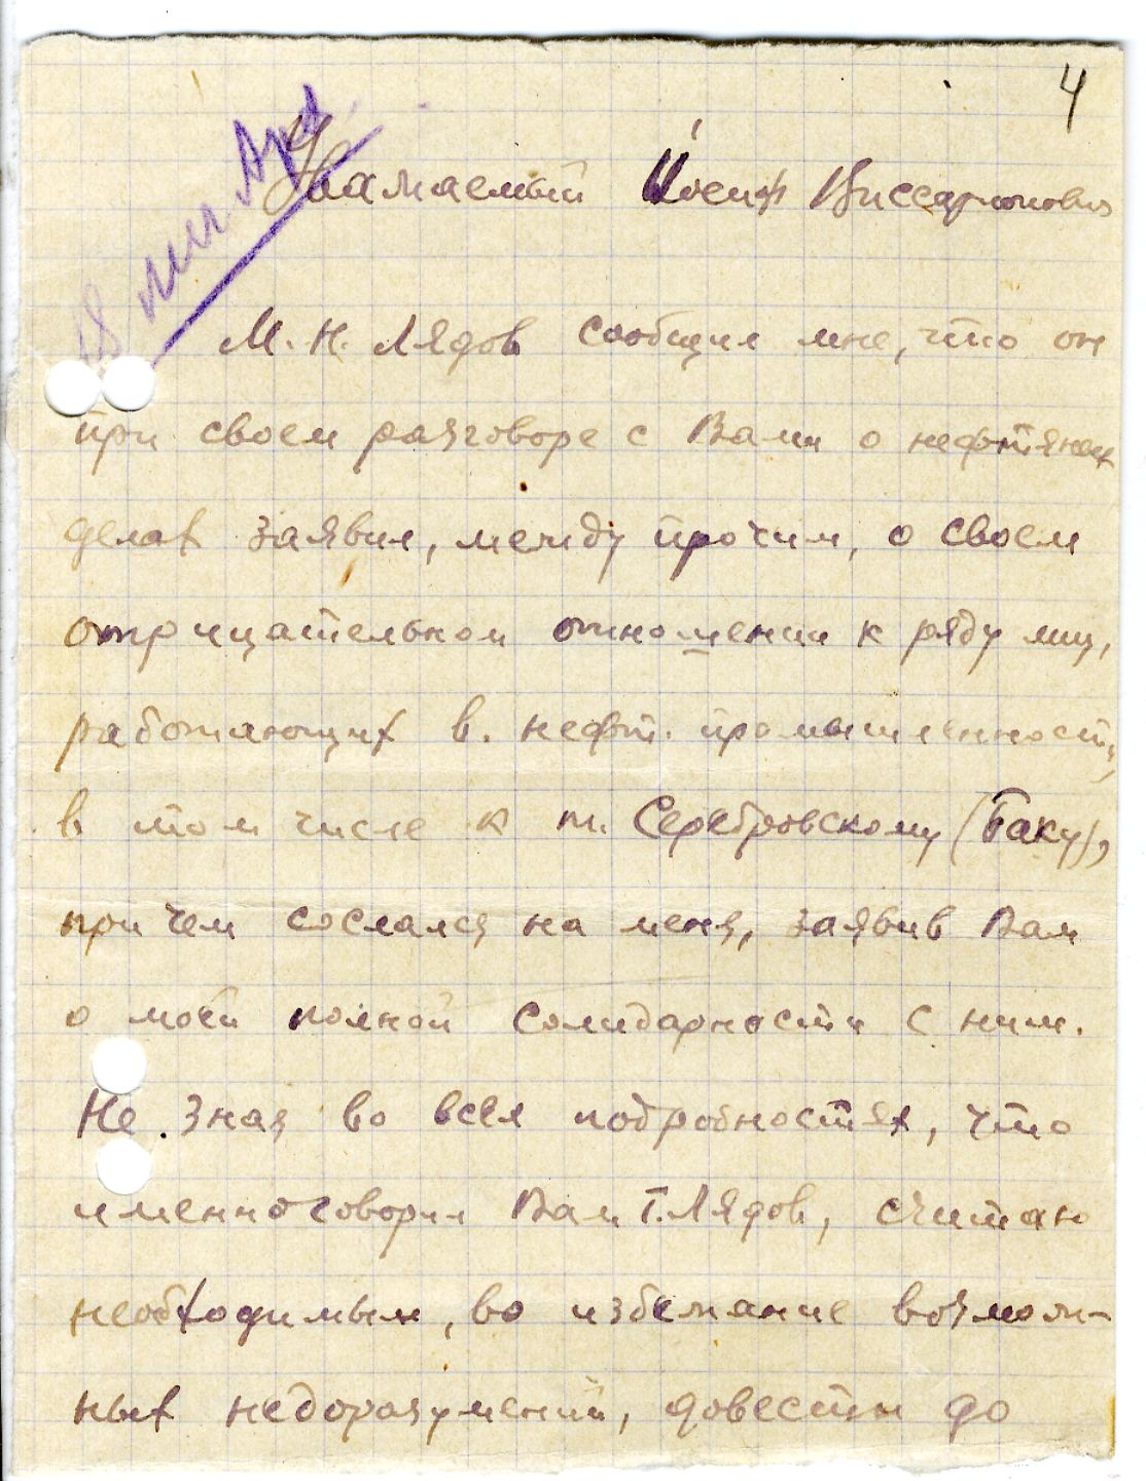 4
Уважаемый Иосиф Виссарионович
М. Н. Лядов сообщил мне, что он
при своем разговоре с Вами о нефтяных
делах заявил, между прочим, о своем
отрицательном отношении к ряду лиц,
работающих в нефт. промышленности,
в том числе к т. Серебровскому (Баку),
при чем сослался на меня, заявив Вам
о моей полной солидарности с ним.
Не зная во всех подробностях, что
именно говорил Вам т. Лядов, считаю
необходимым, во избежание возмож-
ных недоразумений, довести до